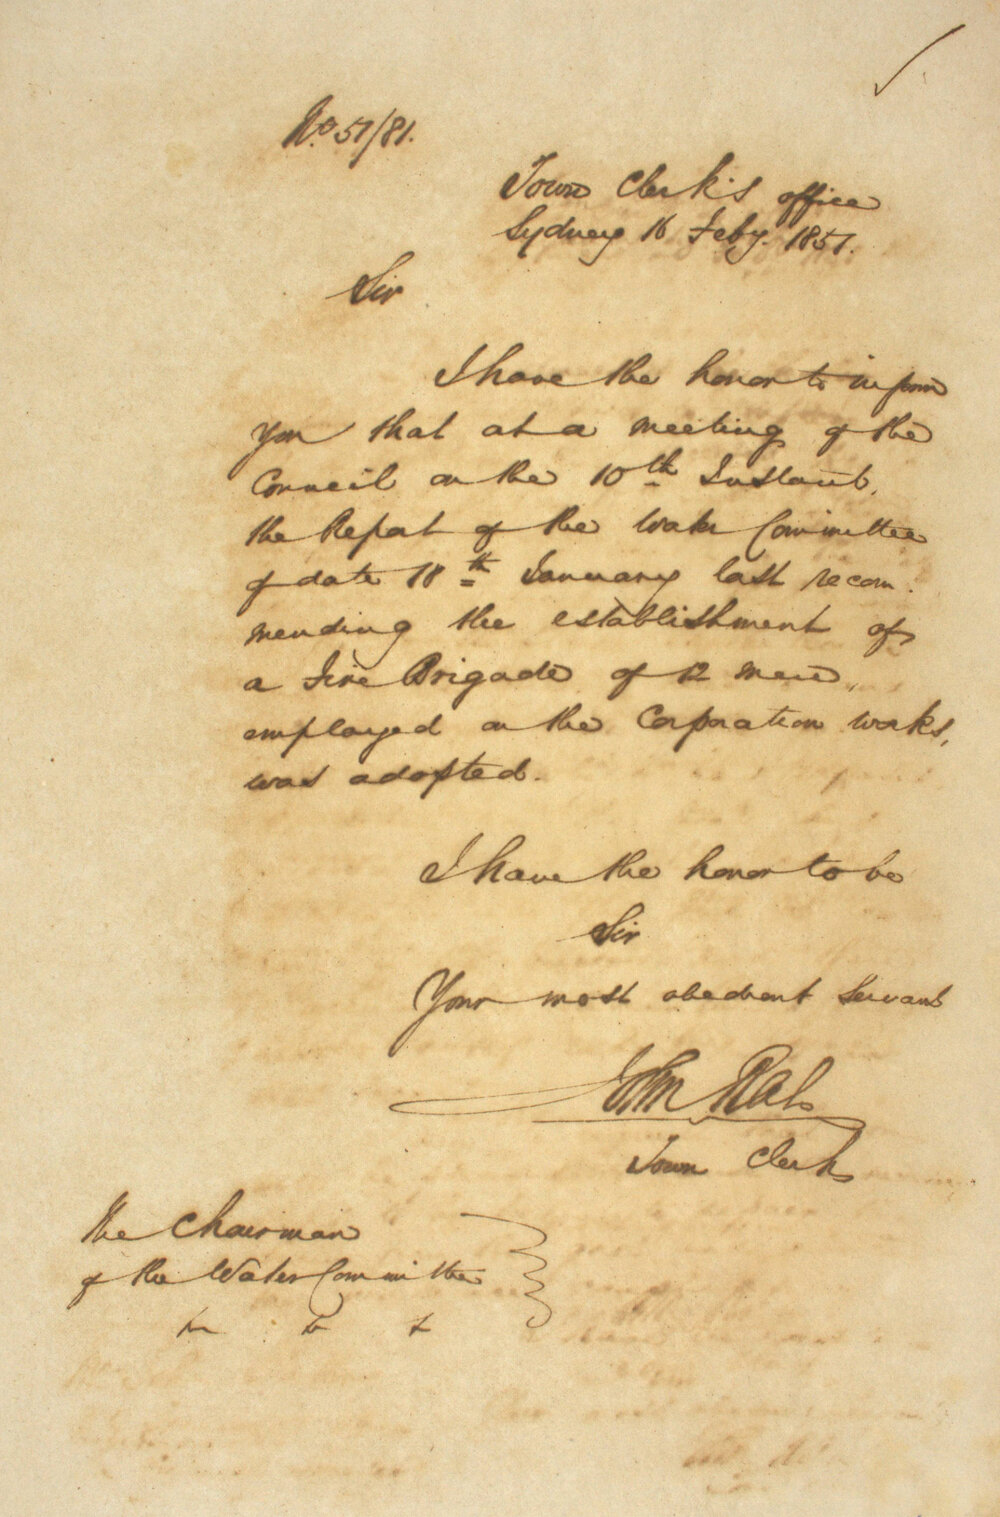 No. 51/81.
Town Clerk's office
Sydney 16 Feby. 1851.
Sir
I have the honor to inform
you that at a meeting of the
Council on the 10th Instant,
the Report of the Water Committee
of date 18th January last recom
mending the establishment of
a Fire Brigade of 12 men,
employed on the Corporation works,
was adopted.
I have the honor to be
Sir
Your most obedient Servant
John Rae
Town Clerk
The Chairman
of the Water Committee